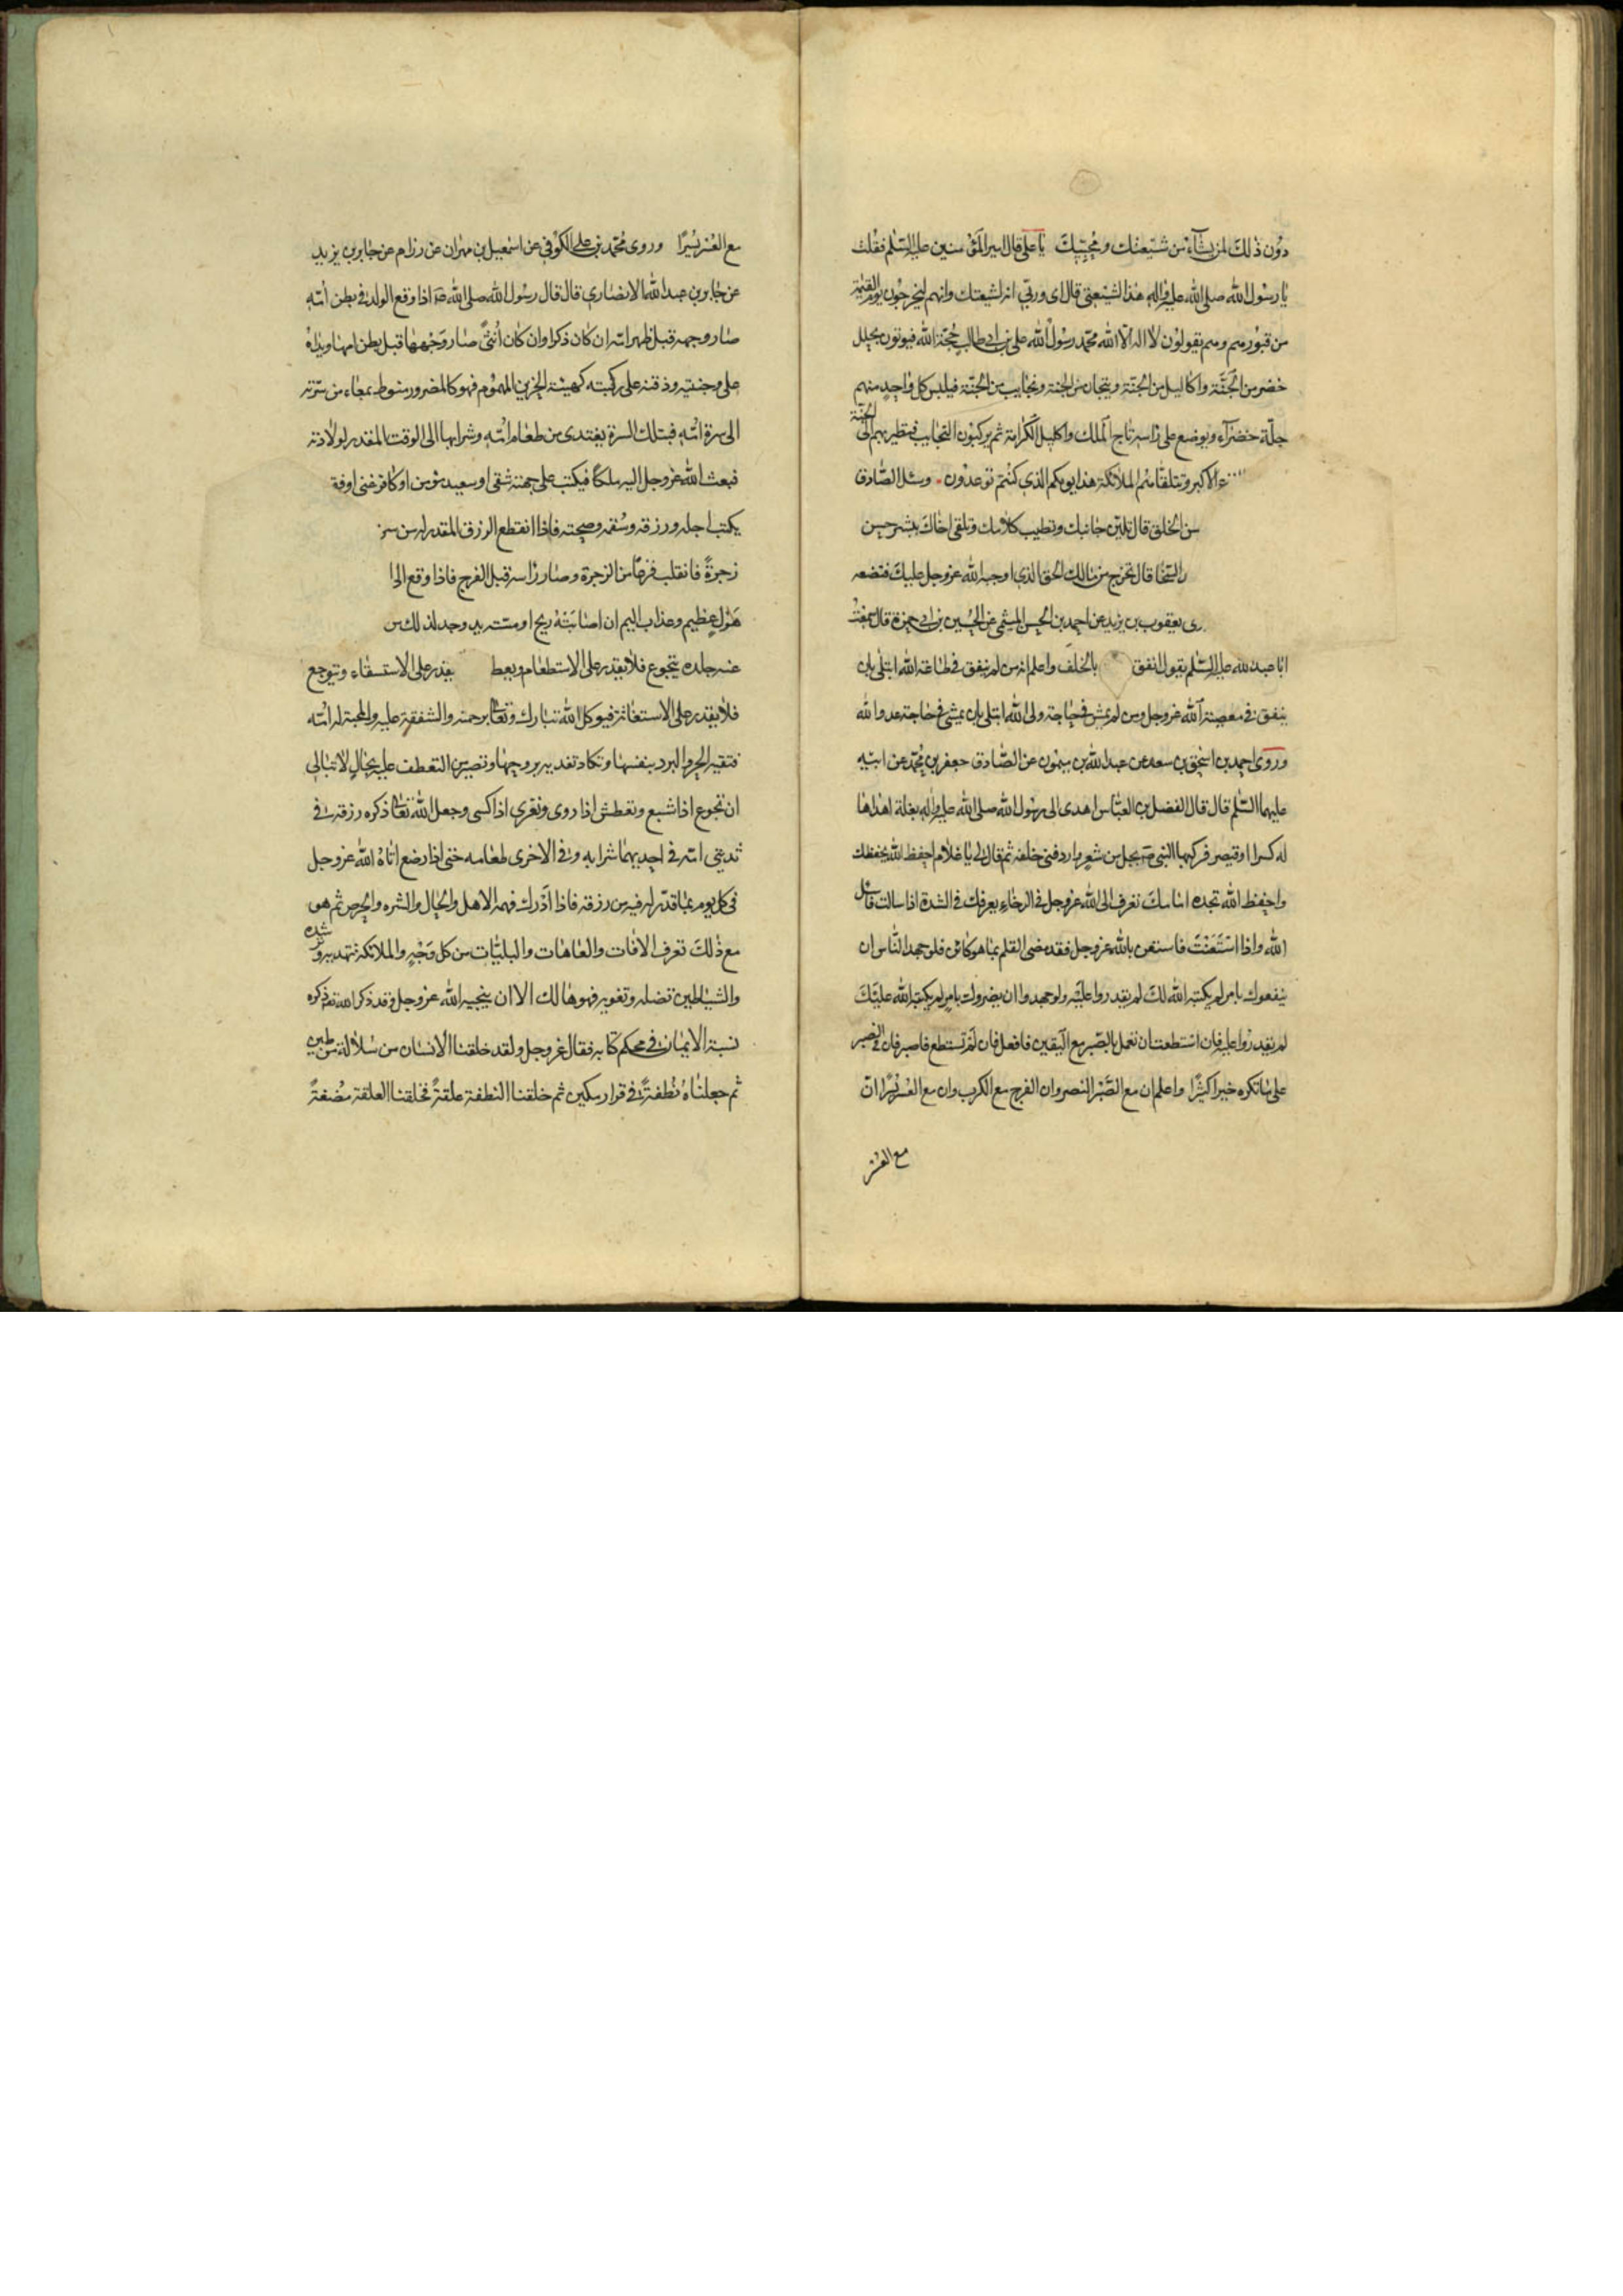 دون ذلك لمن يشاء من شيعتك ومحبيك يا علي قال امير المؤمنين عليه السلم فقلت
يا رسول الله صلى الله عليه واله هذا لشيعتي قال اى وربي انه لشيعتك وانهم ليخرجون يوم القيمة
من قبورهم وهم يقولون لا اله الا الله محمد رسول الله علي بن ابي طالب حجة الله فيوتون بحلل
خضر من الجنة واكاليل من الجنة وتيجان من الجنة ونجايب من الجنة فيلبس كل واحد منهم
حلة خضراء ويوضع على راسه تاج الملك واكليل الكرامة ثم يركبون النجايب فتطير بهم الى الجنة
الاكبر وتتلقاهم الملائكة هذا يومكم الذي كنتم توعدون وسئل الصادق
من الخلق قال تلين جانبك وتطيب كلامك وتلقى اخاك ببشر حسن
السخا قال تخرج من مالك الحق الذي اوجبه الله عز وجل عليك فتضعه
يعقوب بن يزيد عن احمد بن الحسن الميثمي عن الحسين بن ابي حمزة قال سمعت
ابا عبد الله عليه السلم يقول انفق بالخلف واعلم انه من لم ينفق في طاعة الله ابتلى بان
ينفق في معصية الله عز وجل ومن لم يمش في حاجة ولى الله ابتلى بان يمشي في حاجة عدو الله
وروى احمد بن اسحق بن سعد عن عبد الله بن ميمون عن الصادق جعفر بن محمد عن ابيه
عليهما السلم قال قال الفضل بن العباس اهدى الى رسول الله صلى الله عليه واله بغلة اهداها
له كسرا او قيصر فركبها النبي ص بجل من شعر واردفني خلفه ثم قال لي يا غلام احفظ الله يحفظك
واحفظ الله تجده امامك تعرف الى الله عز وجل في الرخاء يعرفك في الشدة اذا سالت فاسئل
الله واذا استعنت فاستعن بالله عز وجل فقد مضى القلم بما هو كائن فلو جهد الناس ان
ينفعوك بامر لم يكتبه الله لك لم يقدروا عليه ولو جهدوا ان يضروك بامر لم يكتبه الله عليك
لم يقدروا عليه فان استطعت ان تعمل بالصبر مع اليقين فافعل فان لم تستطع فاصبر فان في الصبر
على ما تكره خيرا كثيرا واعلم ان مع الصبر النصر وان الفرج مع الكرب وان مع العسر يسرا ان
مع العسر
مع العسر يسرا وروى محمد بن علي الكوفي عن اسمعيل بن مهران عن مرازم عن جابر بن يزيد
عن جابر بن عبد الله الانصاري قال قال رسول الله صلى الله ص اذا وقع الولد في بطن امه
صار وجهه قبل ظهر امه ان كان ذكرا وان كان انثى صار وجهها قبل بطن امها ويداه
على وجنتيه وذقنه على ركبته كهيئة الحزين المهموم فهو كالمصرور منوط بمعاء من سرته
الى سرة امه فبتلك السرة يغتدى من طعام امه وشرابها الى الوقت المقدر لولادته
فبعث الله عز وجل اليه ملكا فيكتب على جبهته شقي او سعيد مؤمن او كافر غنى او فة
يكتب اجله ورزقه وسقمه وصحته فاذا انقطع الرزق المقدر له من سر
زجرة فانقلب فزعا من الزجرة وصار راسه قبل الفرج فاذا وقع الى ا
هول عظيم وعذاب اليم ان اصابته ريح او مسته يد وجد لذلك من
عنه جلده يجوع فلا يقدر على الاستطعام ويعط يقدر على الاستسقاء ويتوجع
فلا يقدر على الاستغاثة فيوكل الله تبارك وتعالى برحمته والشفقة عليه والمحبة له امه
فتقيه الحر والبرد بنفسها وتكاد تفديه بروحها وتصير من التعطف عليه بحال لا تبالى
ان تجوع اذا شبع وتعطش اذا روى وتعرى اذا كسى وجعل الله تعالى ذكره رزقه في
ثديي امه في احديهما شرابه وفي الاخرى طعامه حتى اذا رضع اتاه الله عز وجل
في كل يوم بما قدر له فيه من رزقه فاذا ادرك فهمه الاهل والمال والشره والحرص ثم هو
مع ذلك تعرف الافات والعاهات والبليات من كل وجه والملائكة تهديه وترشده
والشياطين تضله وتغويه فهو هالك الا ان ينجيه الله عز وجل وقد ذكر الله تعالى ذكره
نسبة الانسان في محكم كتابه فقال عز وجل ولقد خلقنا الانسان من سلالة من طين
ثم جعلناه نطفة في قرار مكين ثم خلقنا النطفة علقة فخلقنا العلقة مضغة